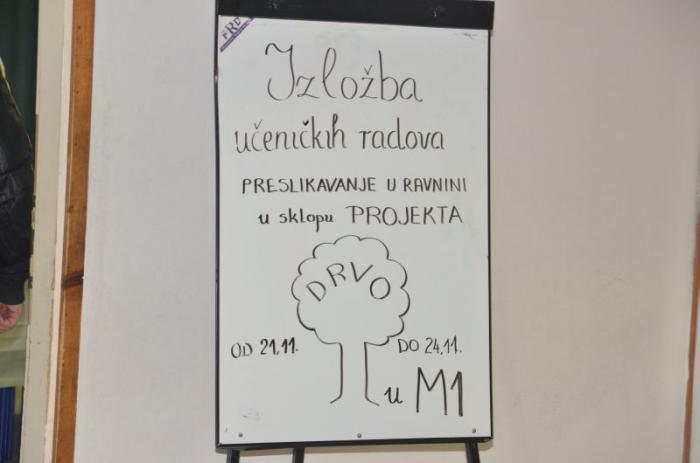 FRD
Izložba
učeničkih radova
PRESLIKAVANJE U RAVNINI
u sklopu PROJEKTA
DRVO
OD 21.11. DO 24.11.
u M1